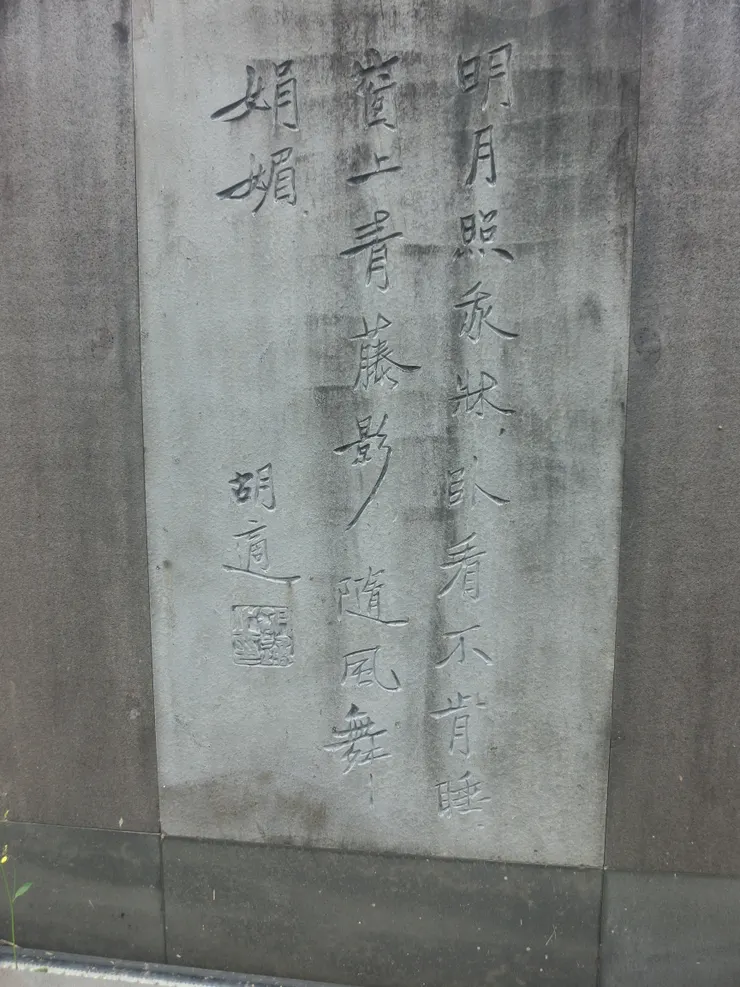 明月照我牀，卧看不肯睡，
窗上青藤影，隨風舞
娟媚。
胡適